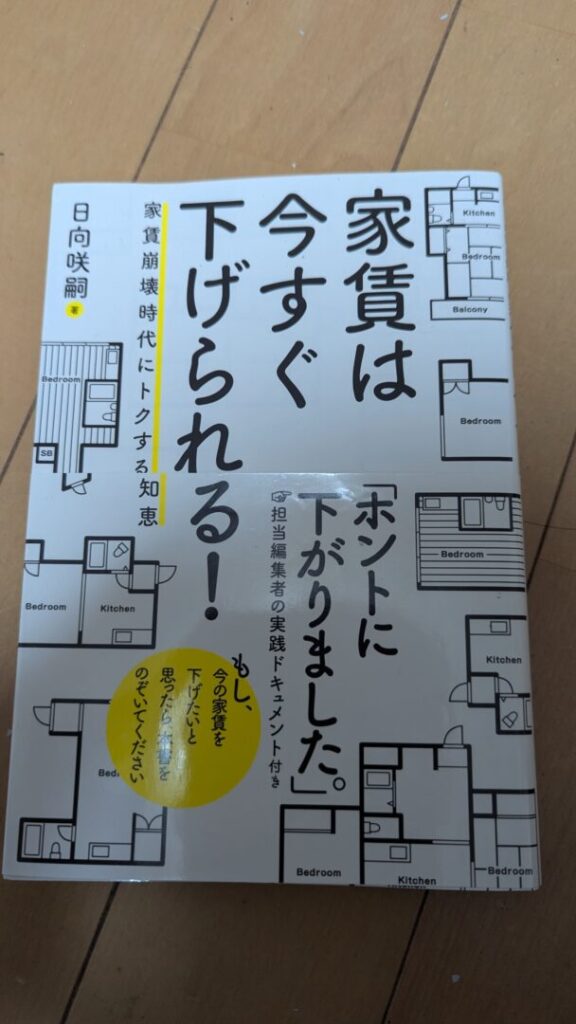 家賃は
今すぐ
下げられる!
家賃崩壊時代にトクする知恵
日向咲嗣 著
「ホントに
下がりました。」
☞担当編集者の実践ドキュメント付き
もし、
今の家賃を
下げたいと
思ったら、本書を
のぞいてください
Kitchen
Bedroom
Balcony
Bedroom
Bedroom
SB
Bedroom
Bedroom
Kitchen
Kitchen
Bedroom
Kitchen
Bedroom